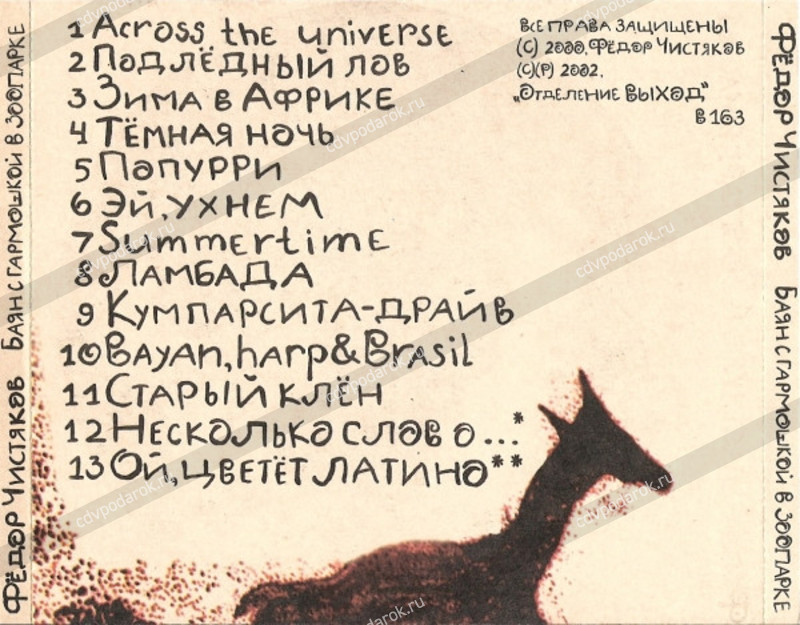 1 Across the universe
2 Подлёдный лов
3 Зима в Африке
4 Тёмная ночь
5 Попурри
6 Эй, ухнем
7 Summertime
8 Ламбада
9 Кумпарсита-драйв
10 Bayan, harp & Brasil
11 Старый клён
12 Несколько слов о ...*
13 Ой, цветёт латино**
Все права защищены
(С) 2000, Фёдор Чистяков
(С)(P) 2002.
„Отделение Выход"
В 163
Фёдор Чистяков Баян с гармошкой в зоопарке
Фёдор Чистяков Баян с гармошкой в зоопарке
cdvpodarok.ru
cdvpodarok.ru
cdvpodarok.ru
cdvpodarok.ru
cdvpodarok.ru
cdvpodarok.ru
cdvpodarok.ru